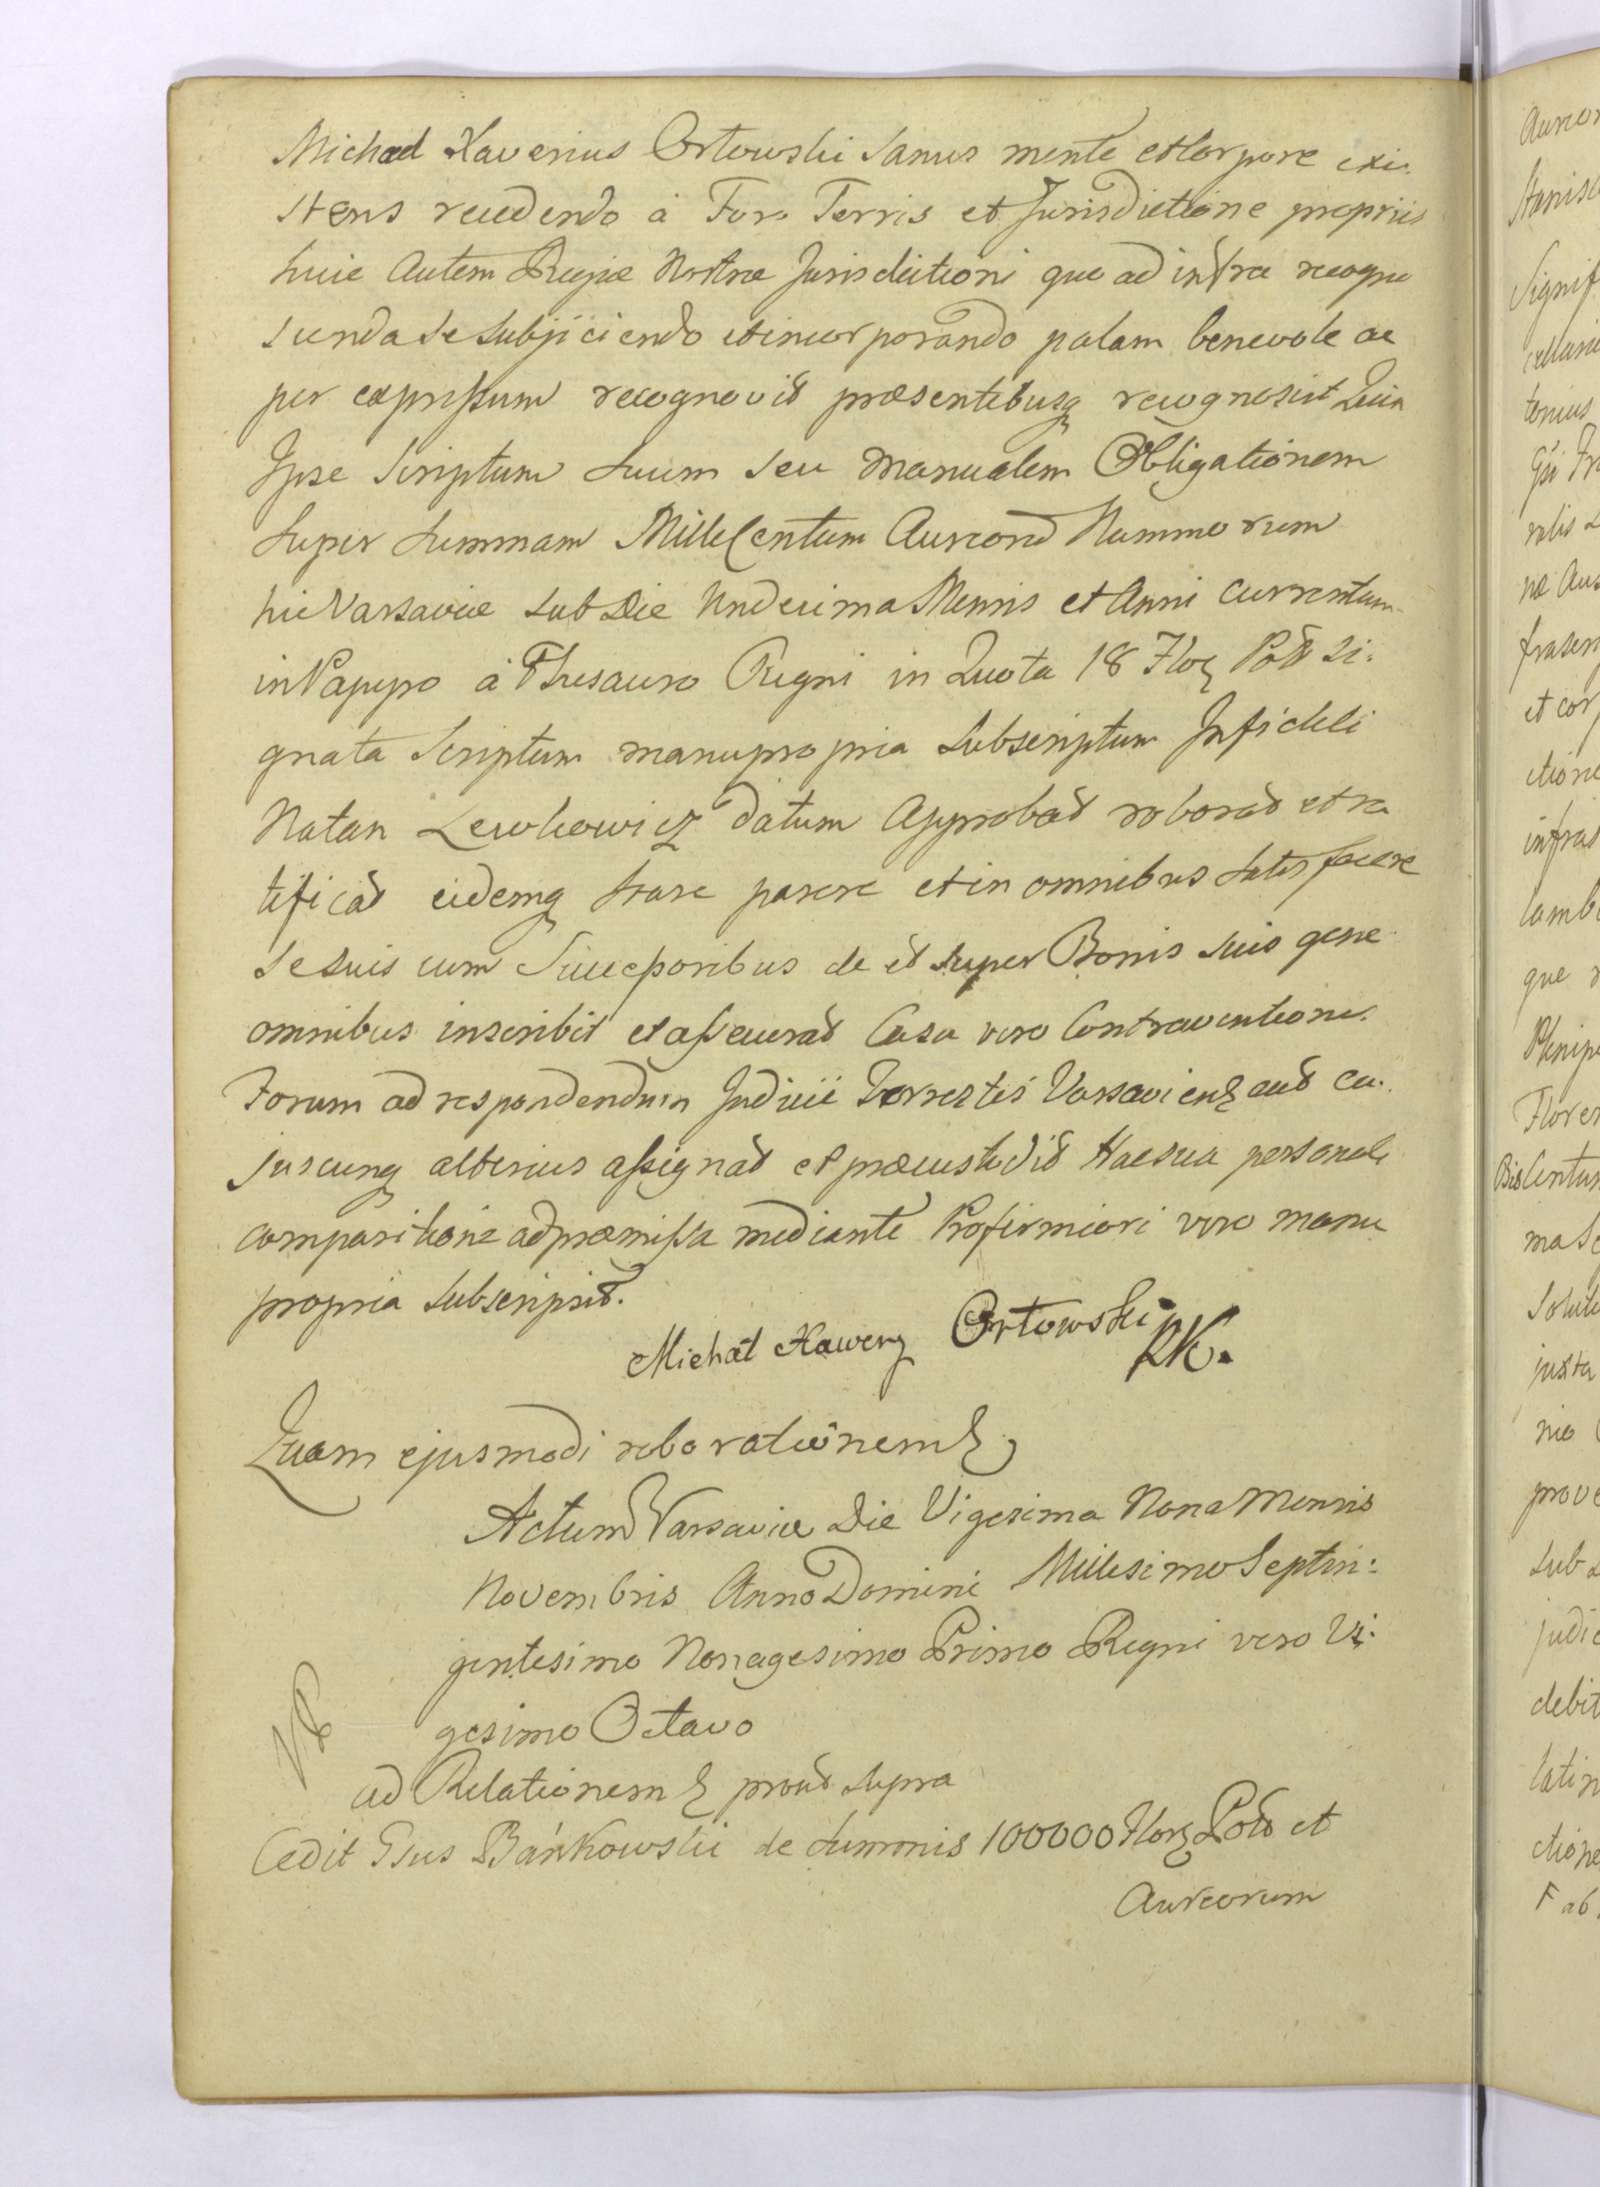 Michael Xaverius Ortowski Sanus mente et Corpore exi-
stens recedendo à Foro Terris et Jurisdictione propriis
huic Autem Regiæ Nostræ Jurisdictioni quo ad infra recogno
scenda Se Subjiciendo et incorporando palam benevole ac
per expressum recognovit præsentibusq recognoscit Quia
Ipse Scriptum Suum Seu Manualem Obligationem
Super Summam Mille Centum Aureorum Nummorum
hic Varsaviæ Sub Die Undecima Mensis et Anni currentium
in Papyro à Thesauro Regni in Quota 18 Flor Poll Si-
gnata Scriptum manu propria Subscriptum Infideli
Natan Lewkowicz datum Approbat roborat et ra
tificat eidemq stare parere et in omnibus Satisfacere
Se Suis cum Successoribus de et super Bonis Suis gene
omnibus inscribit et assecurat Casu vero Contraventionis
Forum ad respondendum Judicii Terrestris Varsaviens aut cu-
juscunq alterius assignat et præcustodit Hac sua personali
comparitione ad præmissa mediante Pro firmiori vero manu
propria Subscripsit.
Michał Xawery Ortowski
Quam ejusmodi roborationem
Actum Varsaviæ Die Vigesima Nona Mensis
Novembris Anno Domini Millesimo Septin-
gentesimo Nonagesimo Primo Regni vero Vi-
gesimo Octavo
ad Relationem prout Supra
Cedit Gsus Bańkowski de Summis 100000 Flor Pol et
Aureorum